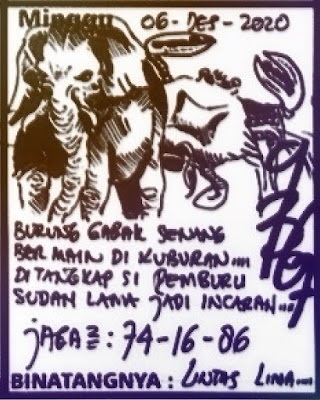 Minggu 06-DES-2020
BURUNG GAGAK SENANG
BERMAIN DI KUBURAN....
DI TANGKAP SI PEMBURU
SUDAH LAMA JADI INCARAN...
JAGA2 : 74-16-06
BINATANGNYA : LINTAS LIMA....